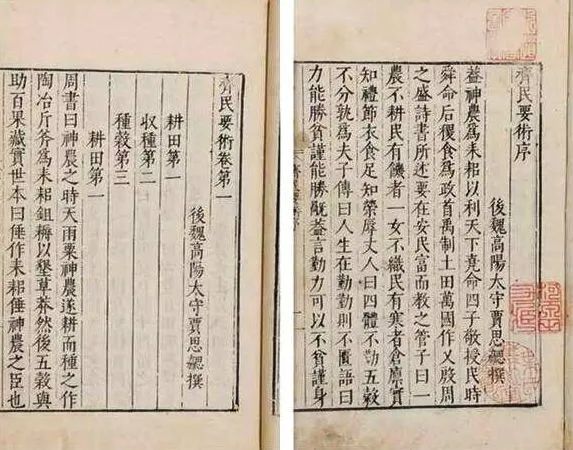 齊民要術序
後魏高陽太守賈思勰撰
葢神農爲耒耜以利天下堯命四子敬授民時
舜命后稷食爲政首禹制土田萬國作乂殷周
之盛詩書所述要在安民富而教之管子曰一
農不耕民有饑者一女不織民有寒者倉廩實
知禮節衣食足知榮辱丈人曰四體不勤五穀
不分孰爲夫子傳曰人生在勤勤則不匱語曰
力能勝貧謹能勝禍葢言勤力可以不貧謹身
齊民要術卷第一
後魏高陽太守賈思勰撰
耕田第一
収種第二
種穀第三
耕田第一
周書曰神農之時天雨粟神農遂耕而種之作
陶冶斤斧爲耒耜鉏耨以墾草莽然後五穀與
助百果藏實世本曰倕作耒耜倕神農之臣也